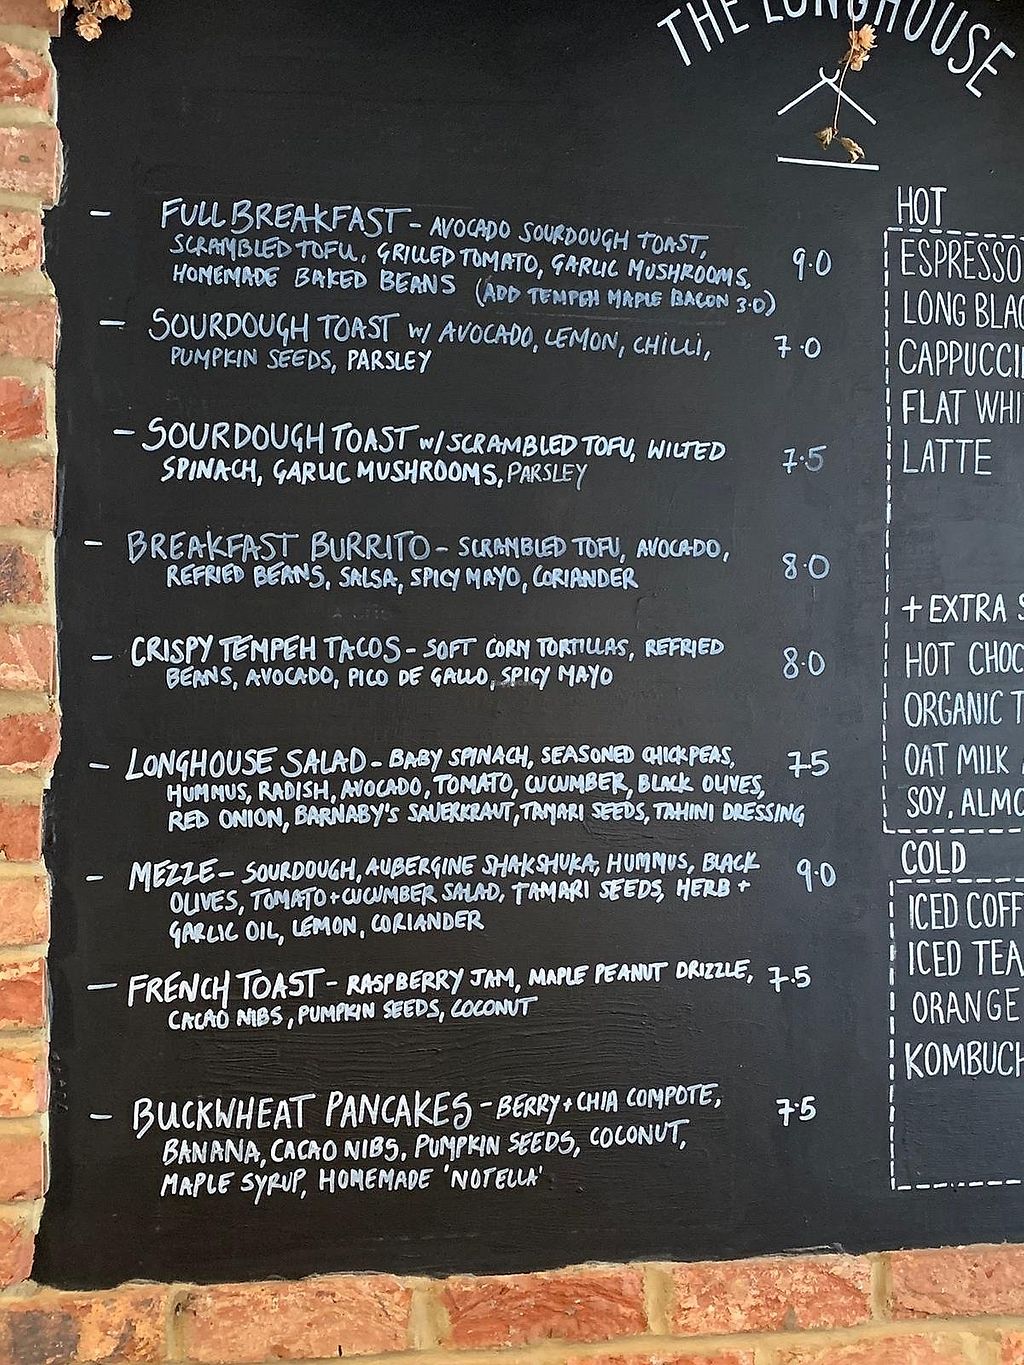 THE LONGHOUSE
— FULL BREAKFAST - AVOCADO SOURDOUGH TOAST,
SCRAMBLED TOFU, GRILLED TOMATO, GARLIC MUSHROOMS, 9.0
HOMEMADE BAKED BEANS (ADD TEMPEH MAPLE BACON 3.0)
— SOURDOUGH TOAST w/ AVOCADO, LEMON, CHILLI, 7.0
PUMPKIN SEEDS, PARSLEY
— SOURDOUGH TOAST w/ SCRAMBLED TOFU, WILTED
SPINACH, GARLIC MUSHROOMS, PARSLEY 7.5
— BREAKFAST BURRITO - SCRAMBLED TOFU, AVOCADO,
REFRIED BEANS, SALSA, SPICY MAYO, CORIANDER 8.0
— CRISPY TEMPEH TACOS - SOFT CORN TORTILLAS, REFRIED
BEANS, AVOCADO, PICO DE GALLO, SPICY MAYO 8.0
— LONGHOUSE SALAD - BABY SPINACH, SEASONED CHICKPEAS, 7.5
HUMMUS, RADISH, AVOCADO, TOMATO, CUCUMBER, BLACK OLIVES,
RED ONION, BARNABY'S SAUERKRAUT, TAMARI SEEDS, TAHINI DRESSING
— MEZZE - SOURDOUGH, AUBERGINE SHAKSHUKA, HUMMUS, BLACK 9.0
OLIVES, TOMATO + CUCUMBER SALAD, TAMARI SEEDS, HERB +
GARLIC OIL, LEMON, CORIANDER
— FRENCH TOAST - RASPBERRY JAM, MAPLE PEANUT DRIZZLE, 7.5
CACAO NIBS, PUMPKIN SEEDS, COCONUT
— BUCKWHEAT PANCAKES - BERRY + CHIA COMPOTE, 7.5
BANANA, CACAO NIBS, PUMPKIN SEEDS, COCONUT,
MAPLE SYRUP, HOMEMADE 'NOTELLA'
HOT
ESPRESSO
LONG BLAC
CAPPUCCI
FLAT WHI
LATTE
+ EXTRA S
HOT CHOC
ORGANIC T
OAT MILK
SOY, ALMO
COLD
ICED COFF
ICED TEA
ORANGE
KOMBUCH